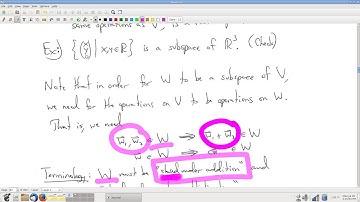 same operations as V, is a
Ex: { (x y 0) | x,y∈ℝ } is a subspace of ℝ³. (Check)
Note that in order for W to be a subspace of V,
we need for the operations on V to be operations on W.
That is, we need
w₁, w₂ ∈ W ⇒ w₁ + w₂ ∈ W
Terminology: W must be "closed under addition" and